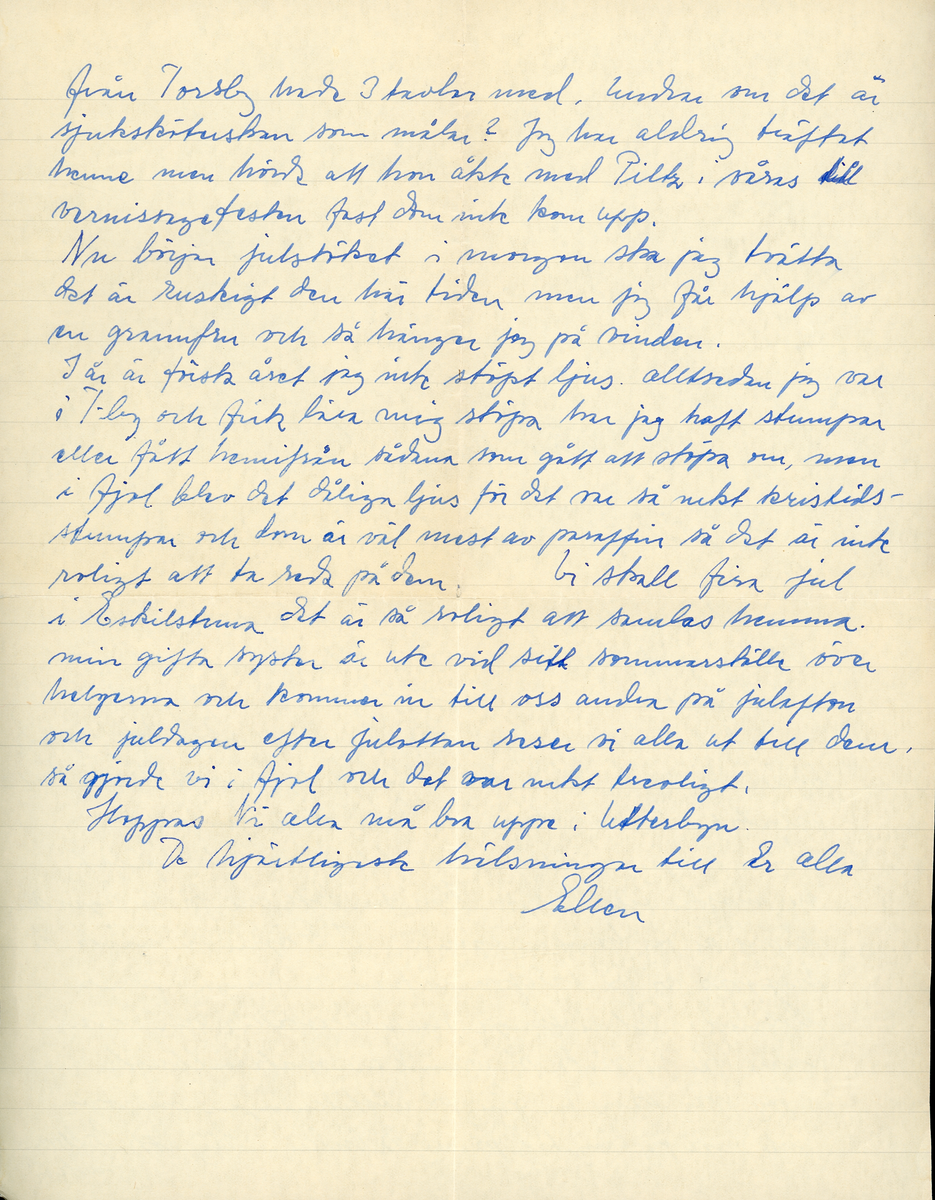 från Torsby hade 3 tavlor med, undrar om det är
sjuksköterskan som målar? Jag har aldrig träffat
henne men hörde att hon åkte med Piltz i våras till
vernissagefesten fast dom inte kom upp.
Nu börjar julstöket i morgon ska jag tvätta
det är ruskigt den här tiden men jag får hjälp av
en grannfru och så hänger jag på vinden.
I år är första året jag inte stöpt ljus. alltsedan jag var
i T-by och fick lära mig stöpa har jag haft stumpar
eller fått hemifrån sådana som gått att stöpa om, men
i fjol blev det dåliga ljus för det var så mkt kristids-
stumpar och dom är väl mest av paraffin så det är inte
roligt att ta reda på dem. Vi skall fira jul
i Eskilstuna det är så roligt att samlas hemma.
min gifta syster är ute vid sitt sommarställe över
helgerna och kommer in till oss andra på julafton
och juldagen efter julottan reser vi alla ut till dem,
så gjorde vi i fjol och det var mkt trevligt.
Hoppas Ni alla må bra uppe i Utterbyn.
De hjärtligaste hälsningar till Er alla
Ellen